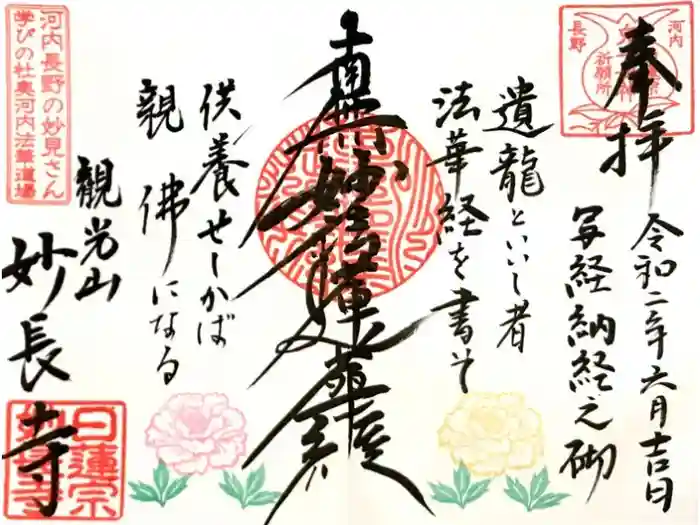 奉拝
河内
長野
祈願所
令和二年六月吉日
写経納経之砌
遺龍といし者
法華経を書そ
南無妙法蓮華経
供養せしかば
親佛になる
観光山
妙長寺
河内長野の妙見さん
学びの杜奥河内法華道場
日蓮宗
妙長寺